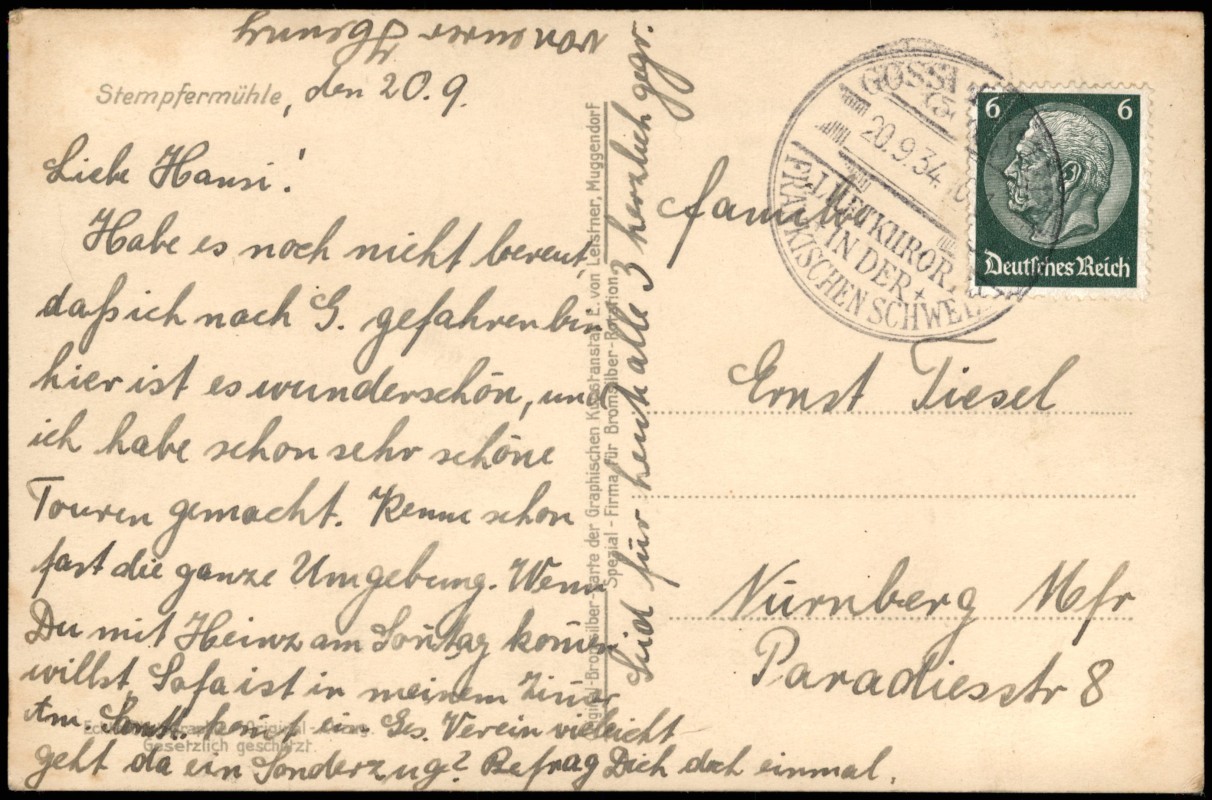 Stempfermühle, den 20.9.
Liebe Hansi!
Habe es noch nicht bereut,
daß ich nach G. gefahren bin
hier ist es wunderschön, und
ich habe schon sehr schöne
Touren gemacht. Kenne schon
fast die ganze Umgebung. Wenn
Du mit Heinz am Soñtag kom̄en
willst, Sofa ist in meinem Zim̄er
Am. kom̄t ein Ges. Verein vielleicht
geht da ein Sonderzug? Befrag Dich doch einmal.
Seid für heut alle 3 herzlich gegr.
von eurer
Gesetzlich geschützt.
Original-Bromsilber-Karte der Graphischen Kunstanstalt E. von Leistner, Muggendorf
Spezial-Firma für Bromsilber-Rotation
GÖSSW
20.9.34.
LUFTKURORT
IN DER
FRÄNKISCHEN SCHWEIZ
6 6
Deutsches Reich
Familie
Ernst Tiesel
Nürnberg Mfr
Paradiesstr 8